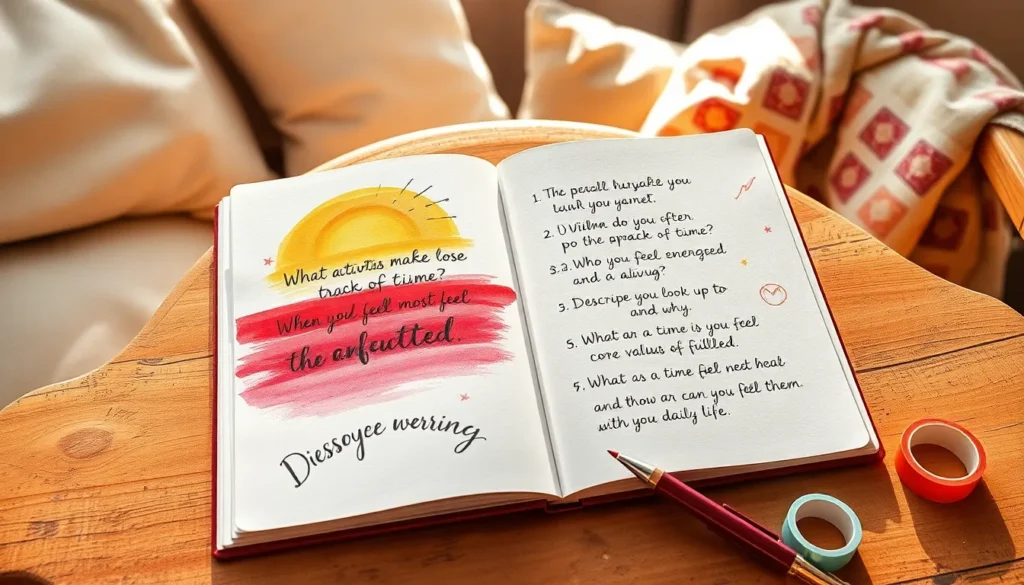 What ativitis make lose
track of tiime?
When you feel most feel
the anfcutted.
Diessoyee werring
1. The perall huryake you
you yamet.
2. do you often
po the aprack of tiume?
s.3. Who you feel energsed
and a alivug?
3. Describe you look up to
and why.
5. What ar a time is you feel
core valuis of fulled.
5. What as a time fiel nect heal
and thow ar can you feel them.
with you daily life.